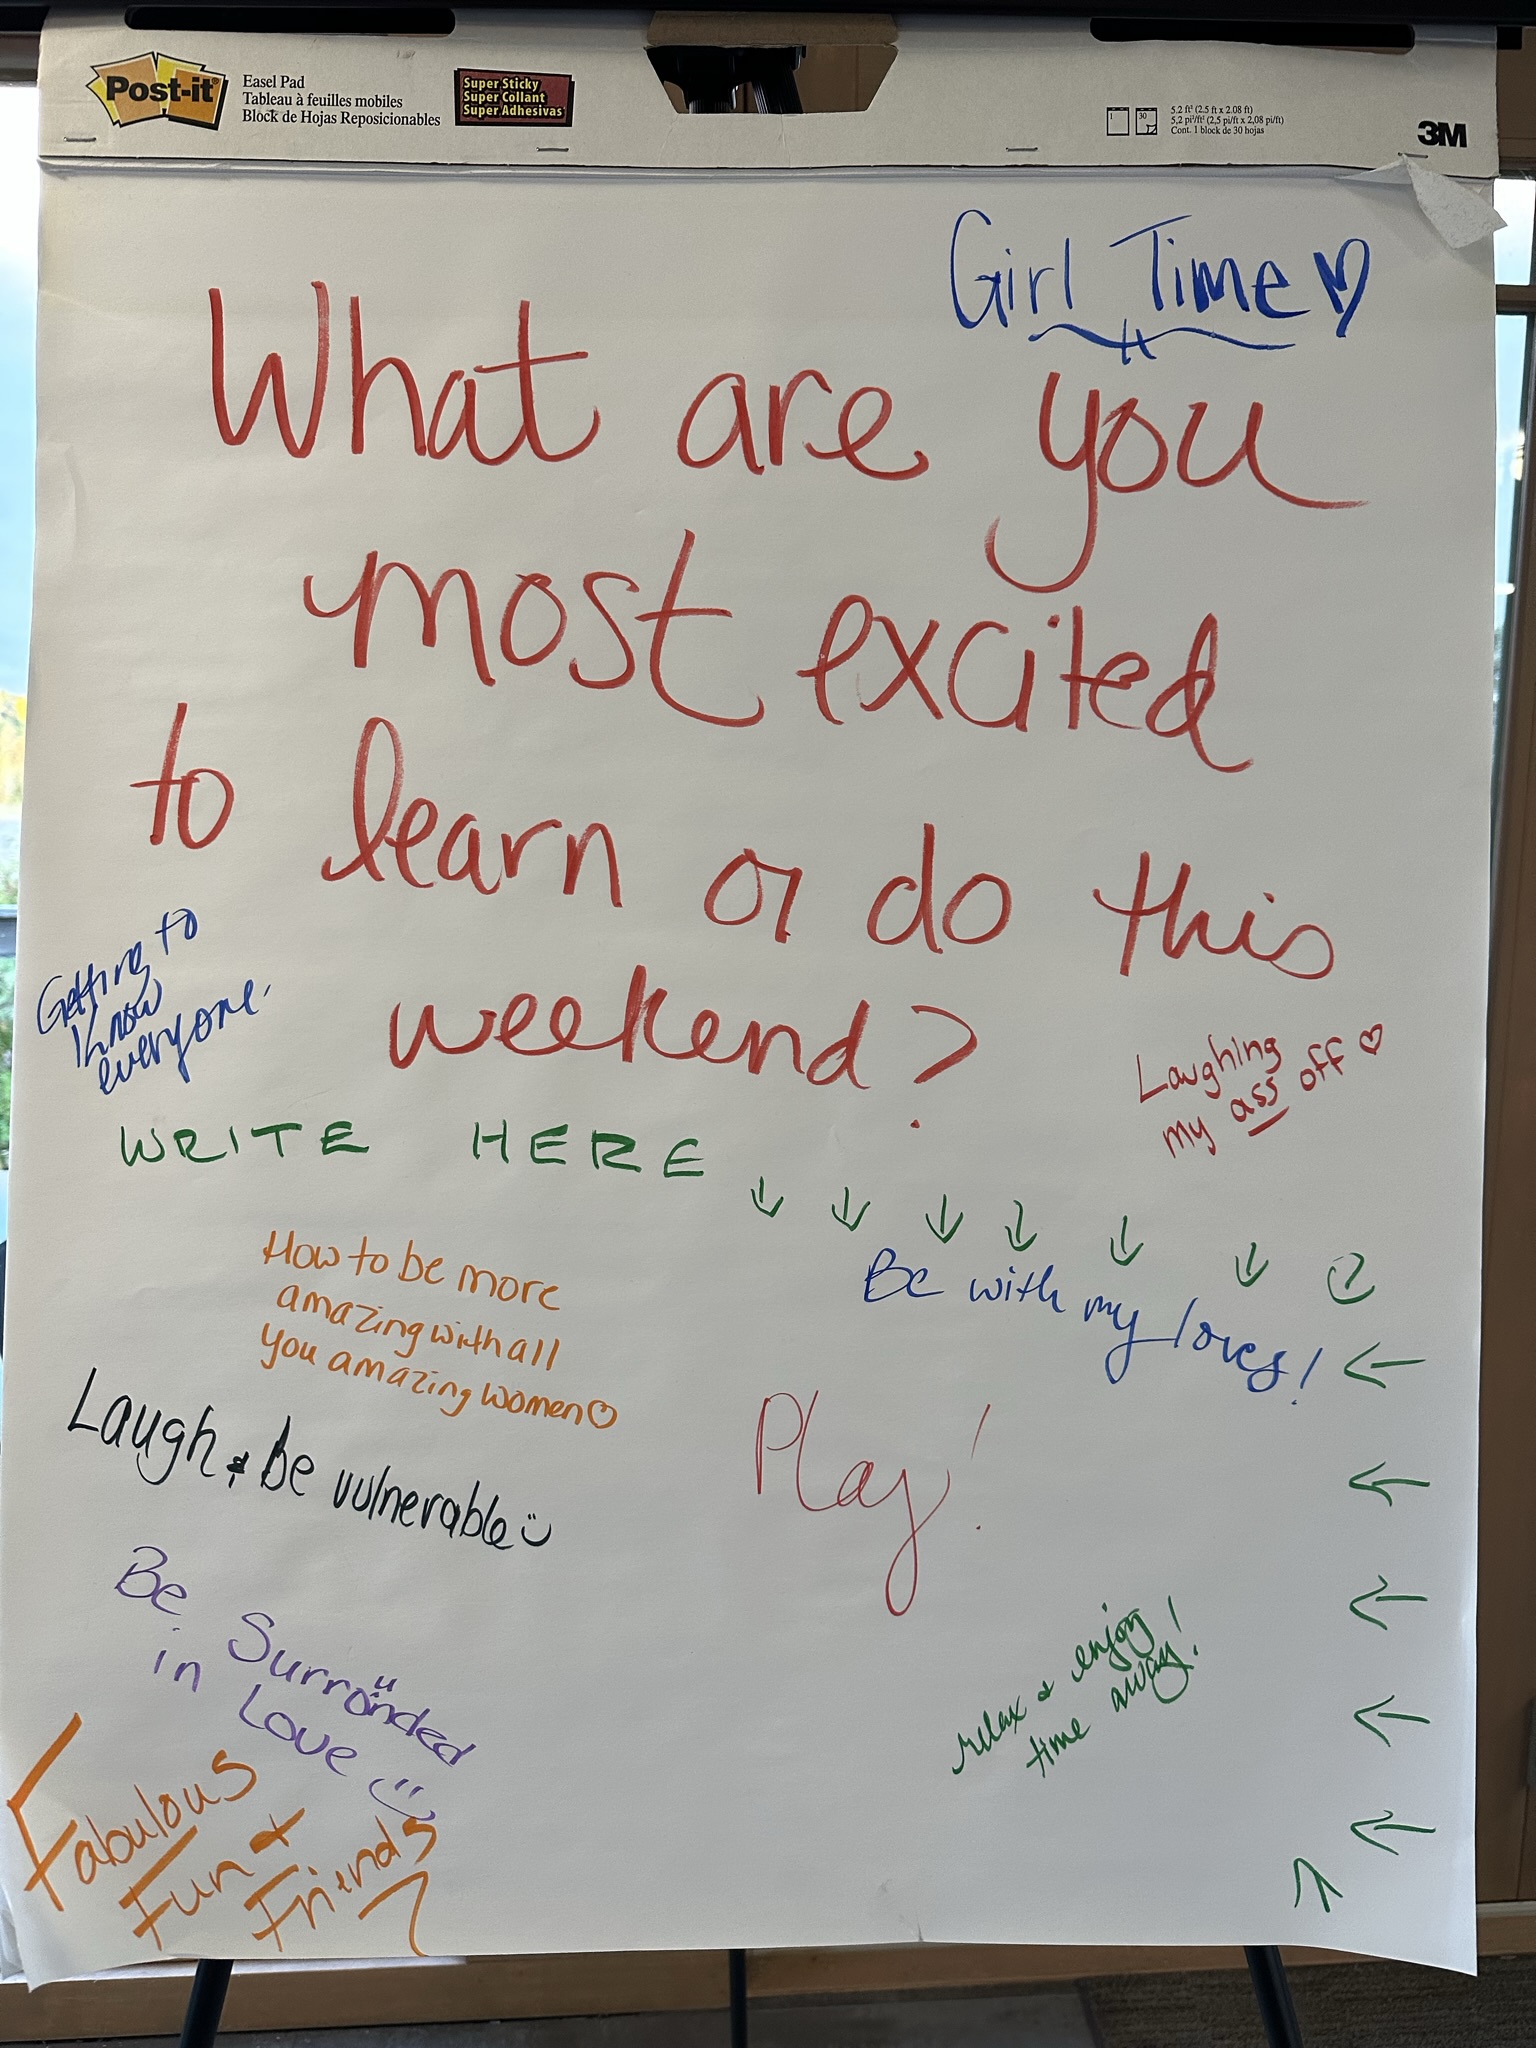 Post-it
Easel Pad
Tableau à feuilles mobiles
Block de Hojas Reposicionables
Super Sticky
Super Collant
Super Adhesivas
1
30
5.2 ft² (2.5 ft x 2.08 ft)
5,2 pi²/ft² (2,5 pi/ft x 2,08 pi/ft)
Cont. 1 block de 30 hojas
3M
Girl Time ♡
What are you
most excited
to learn or do this
weekend?
Getting to
know
everyone.
Laughing
my ass off ♡
WRITE HERE ↓ ↓ ↓ ↓ ↓ ↓ ↓
How to be more
amazing with all
you amazing women♡
Be with my loves!
Laugh & Be vulnerable
Play!
Be Surrounded
in Love
relax & enjoy
time away!
Fabulous
Fun &
Friends